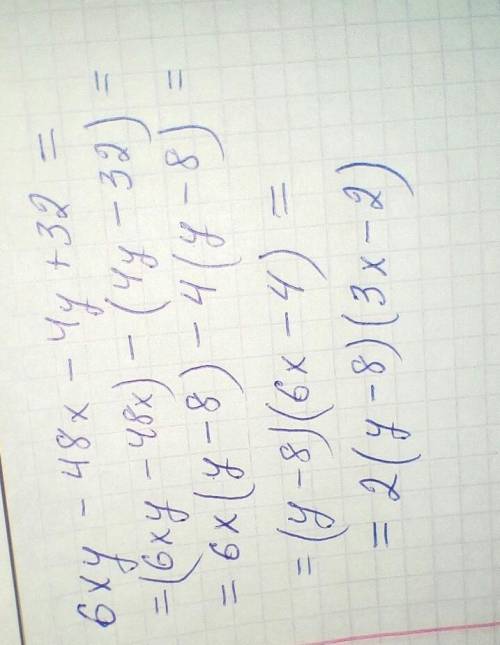 6xy - 48x - 4y + 32 =
= (6xy - 48x) - (4y - 32) =
= 6x(y - 8) - 4(y - 8) =
= (y - 8)(6x - 4) =
= 2(y - 8)(3x - 2)